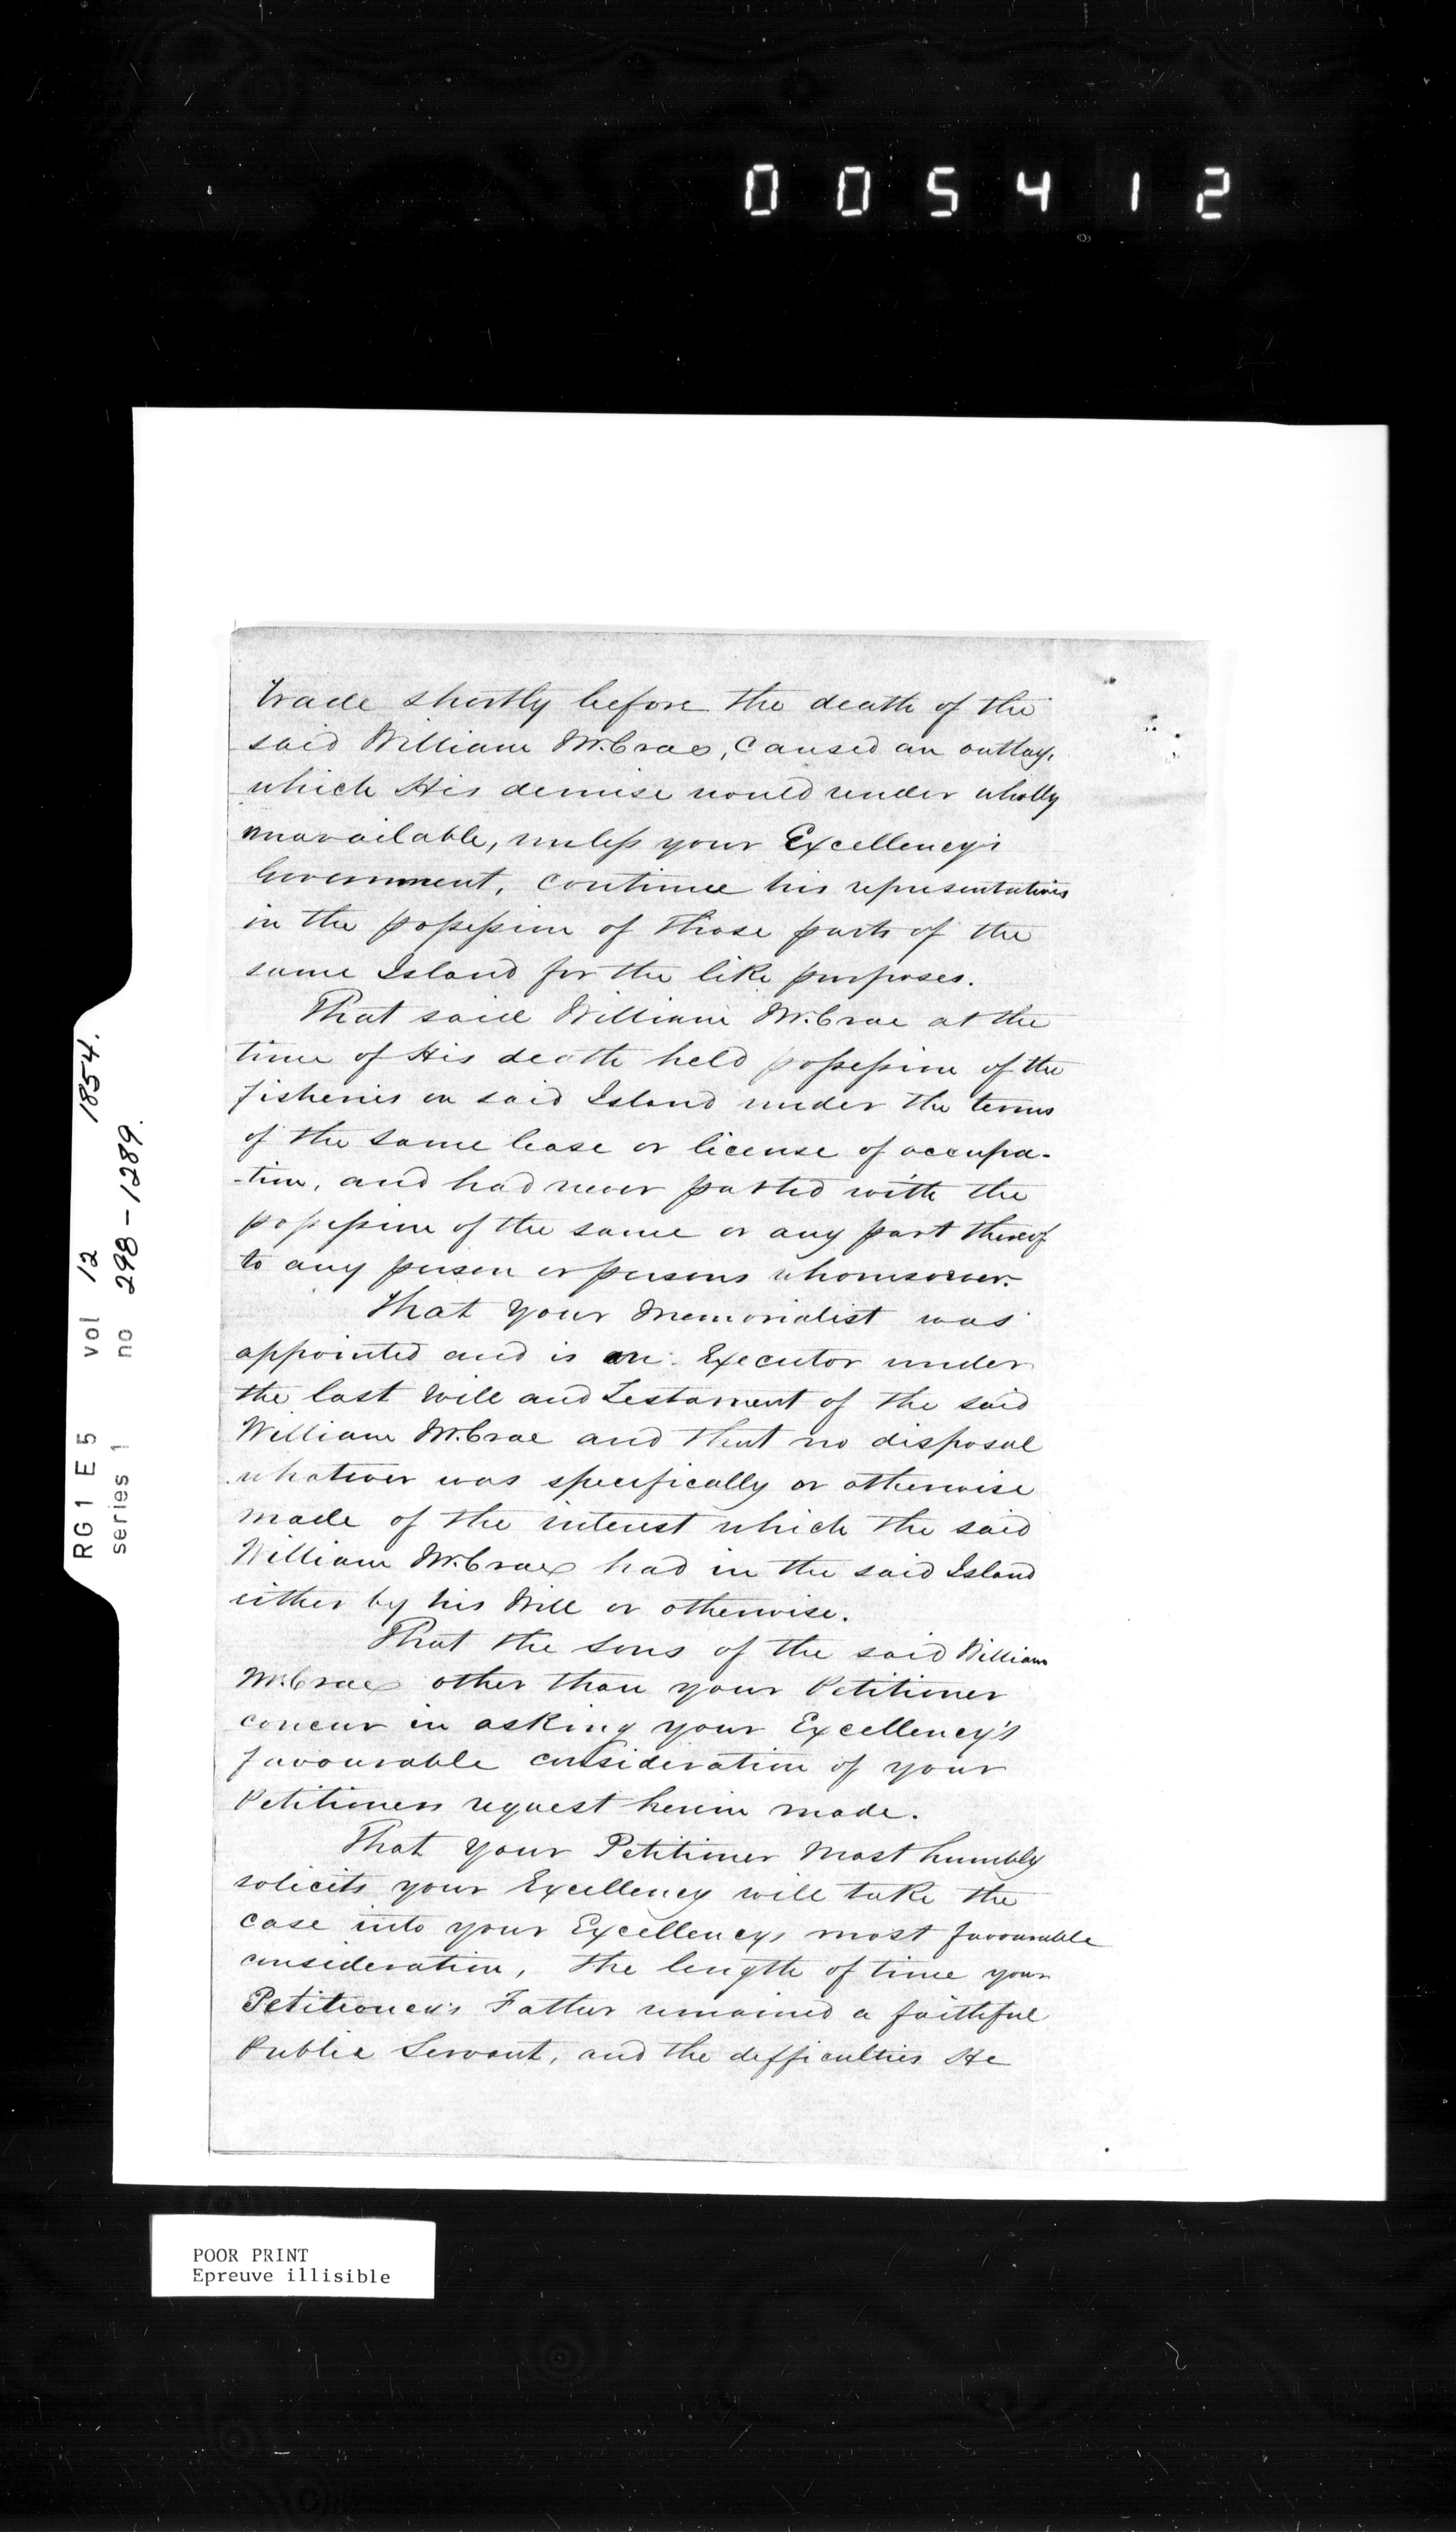 005412
trade shortly before the death of the
said William McCrae, caused an outlay,
which His demise would render wholly
unavailable, unless your Excellency's
Government, continue his representatives
in the possession of those parts of the
same Island for the like purposes.
That said William McCrae at the
time of His death held possession of the
fisheries on said Island under the terms
of the same lease or license of occupa-
-tion, and had never parted with the
possession of the same or any part thereof
to any person or persons whomsoever.
That your Memorialist was
appointed and is an Executor under
the last Will and Testament of the said
William McCrae and that no disposal
whatever was specifically or otherwise
made of the interest which the said
William McCrae had in the said Island
either by his Will or otherwise.
That the sons of the said William
McCrae other than your Petitioner
concur in asking your Excellency's
favourable consideration of your
Petitioners request herein made.
That your Petitioner most humbly
solicits your Excellency will take the
case into your Excellencys most favourable
consideration, the length of time your
Petitioner's Father remained a faithful
Public Servant, and the difficulties He
RG 1 E 5 vol 12 1854.
series 1 no 298-1289.
POOR PRINT
Epreuve illisible